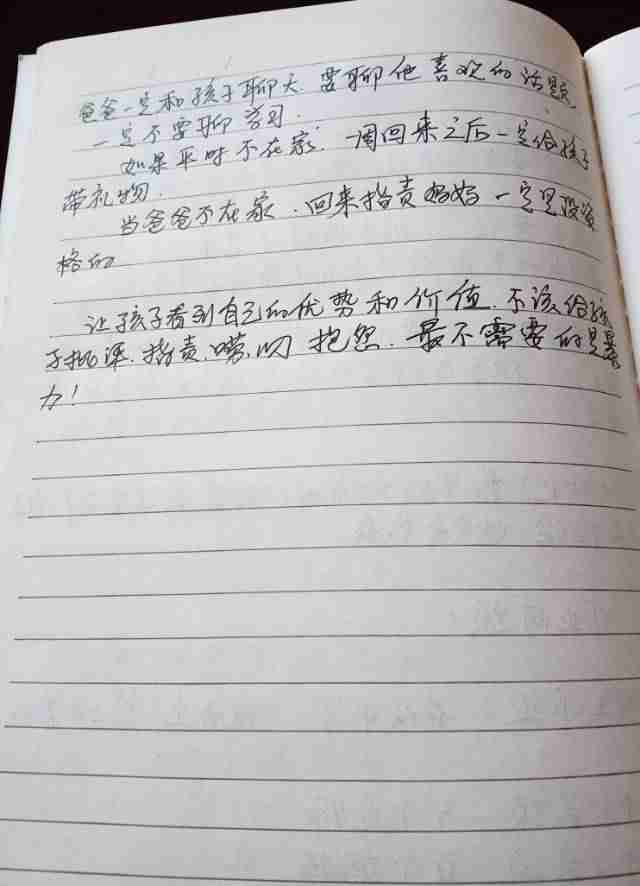 爸爸一定和孩子聊天.要聊他喜欢的话题,
一定不要聊学习.
如果平时不在家.一周回来之后一定给孩子
带礼物.
当爸爸不在家.回来指责妈妈一定是没资
格的
让孩子看到自己的优势和价值.不该给孩
子批评.指责.唠叨 抱怨.最不需要的是暴
力!